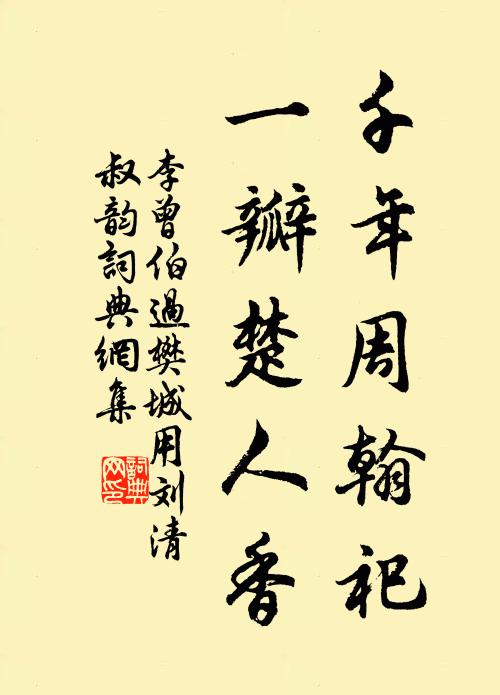 千年周翰祀
一瓣楚人香
李曾伯過樊城用刘清
叔韵詞典網集
詞典
网印